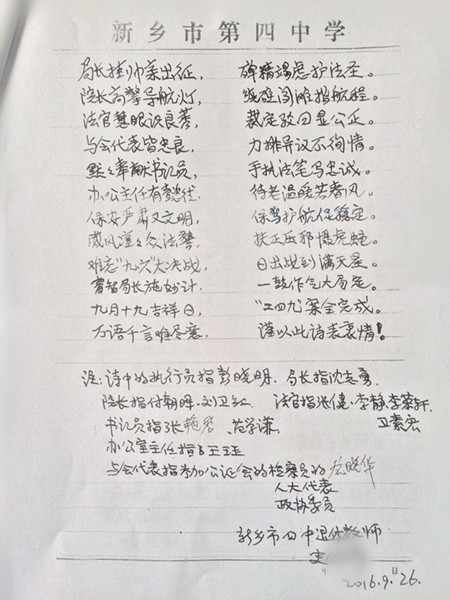 新乡市第四中学
局长挂帅亲出征, 殚精竭虑护法圣。
院长高擎导航灯, 绕礁闯滩指航程。
法官慧眼识良莠, 裁定驳回显公正。
与会代表皆忠良, 力排异议不徇情。
默默奉献书记员, 手执法笔写忠诚。
办公主任有责任, 待老温暖若春风。
保安严肃又文明, 保驾护航促稳定。
威风凛凛众法警, 扶正压邪慑
难忘"九六"大决战, 日出战到满天星。
曹智局长施妙计, 一鼓作气大局定。
九月十九吉祥日, "二四九"案全完成。
万语千言难尽意, 谨以此诗表衷情!
注: 诗中的执行员指彭晓明. 局长指沈志勇
院长指付朝晖. 刘卫红 法官指张健·李静·李荣轩.
书记员指张艳君 范学谦 卫素宏
办公室主任指王珏
与会代表指参加公证会的检察员的 晓华
人大代表
政协委员
新乡市四中退休教师
史
2016.9.26.日